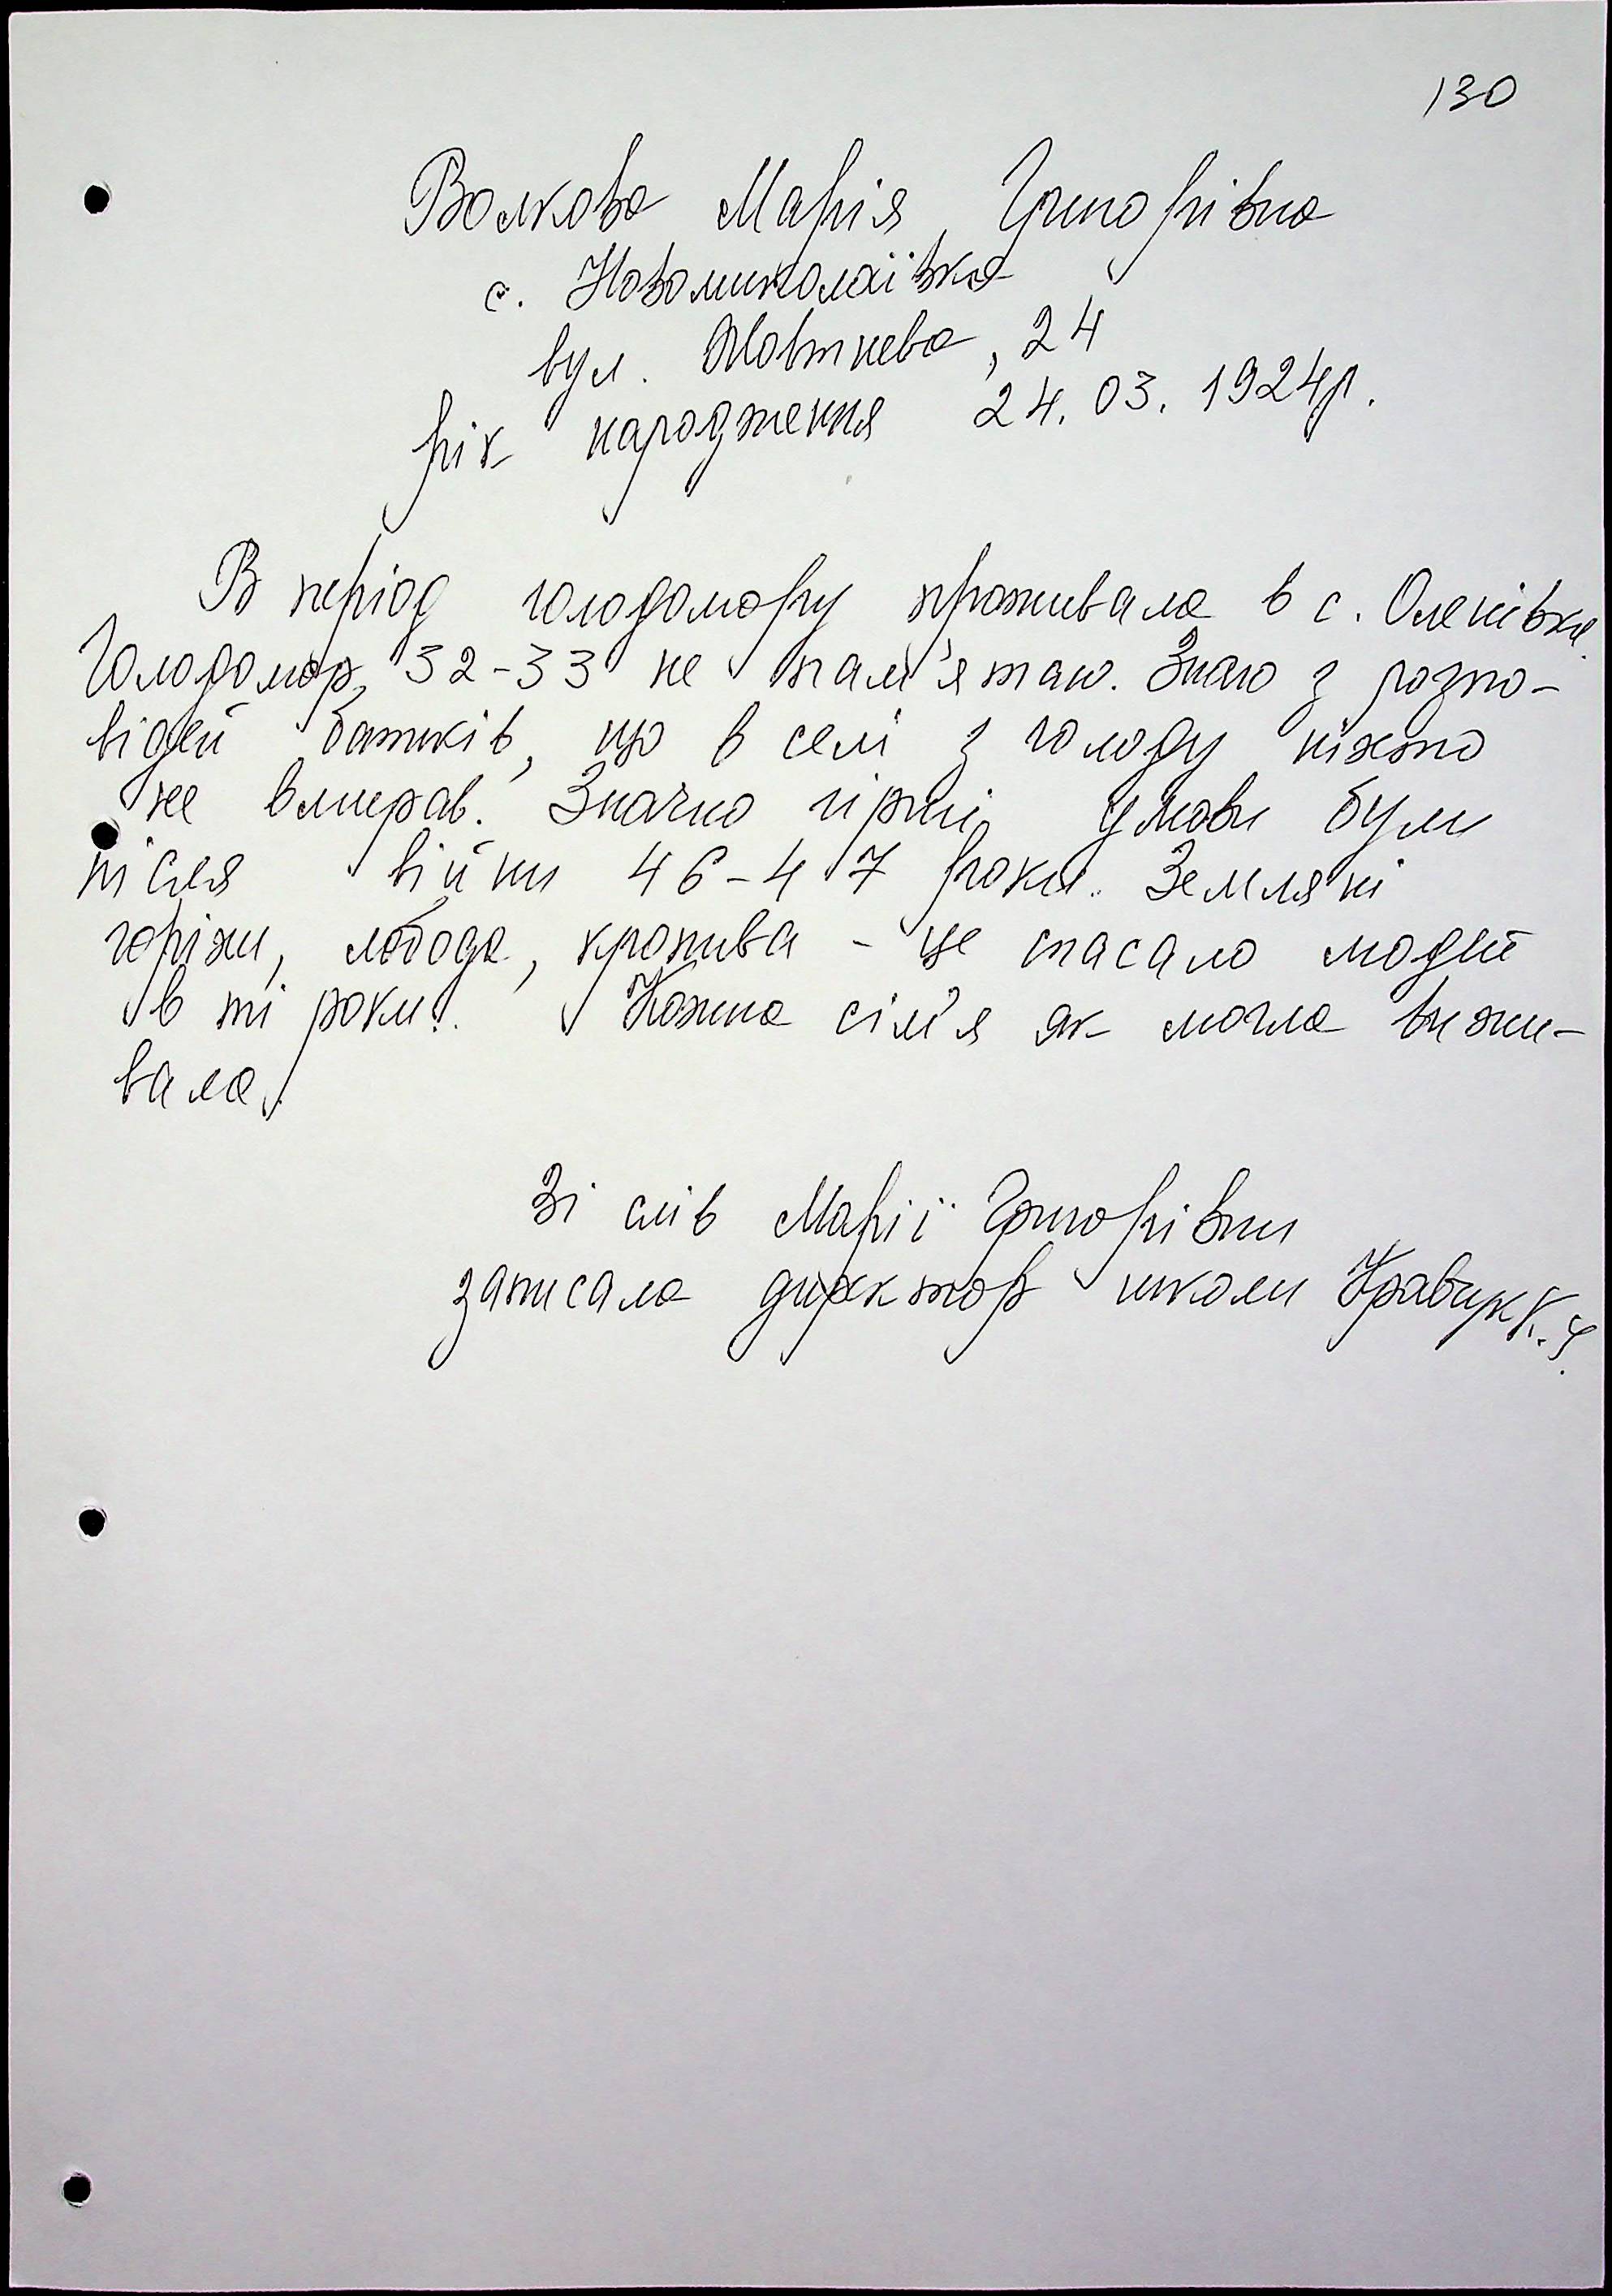 130
Волкова Марія Григорівна
с. Новомиколаївка
вул. Жовтнева, 24
рік народження 24.03.1924р.
В період голодомору проживала в с. Оленівка.
Голодомор 32-33 не пам'ятаю. Знаю з розпо-
відей батьків, що в селі з голоду ніхто
не вмирав. Значно гірші умови були
після війни 46-47 роки. Земляні
горіхи, лобода, кропива - це спасало людей
в ті роки. Кожна сім'я як могла вижи-
вала.
Зі слів Марії Григорівни
записала директор школи Кравчук К.Я.